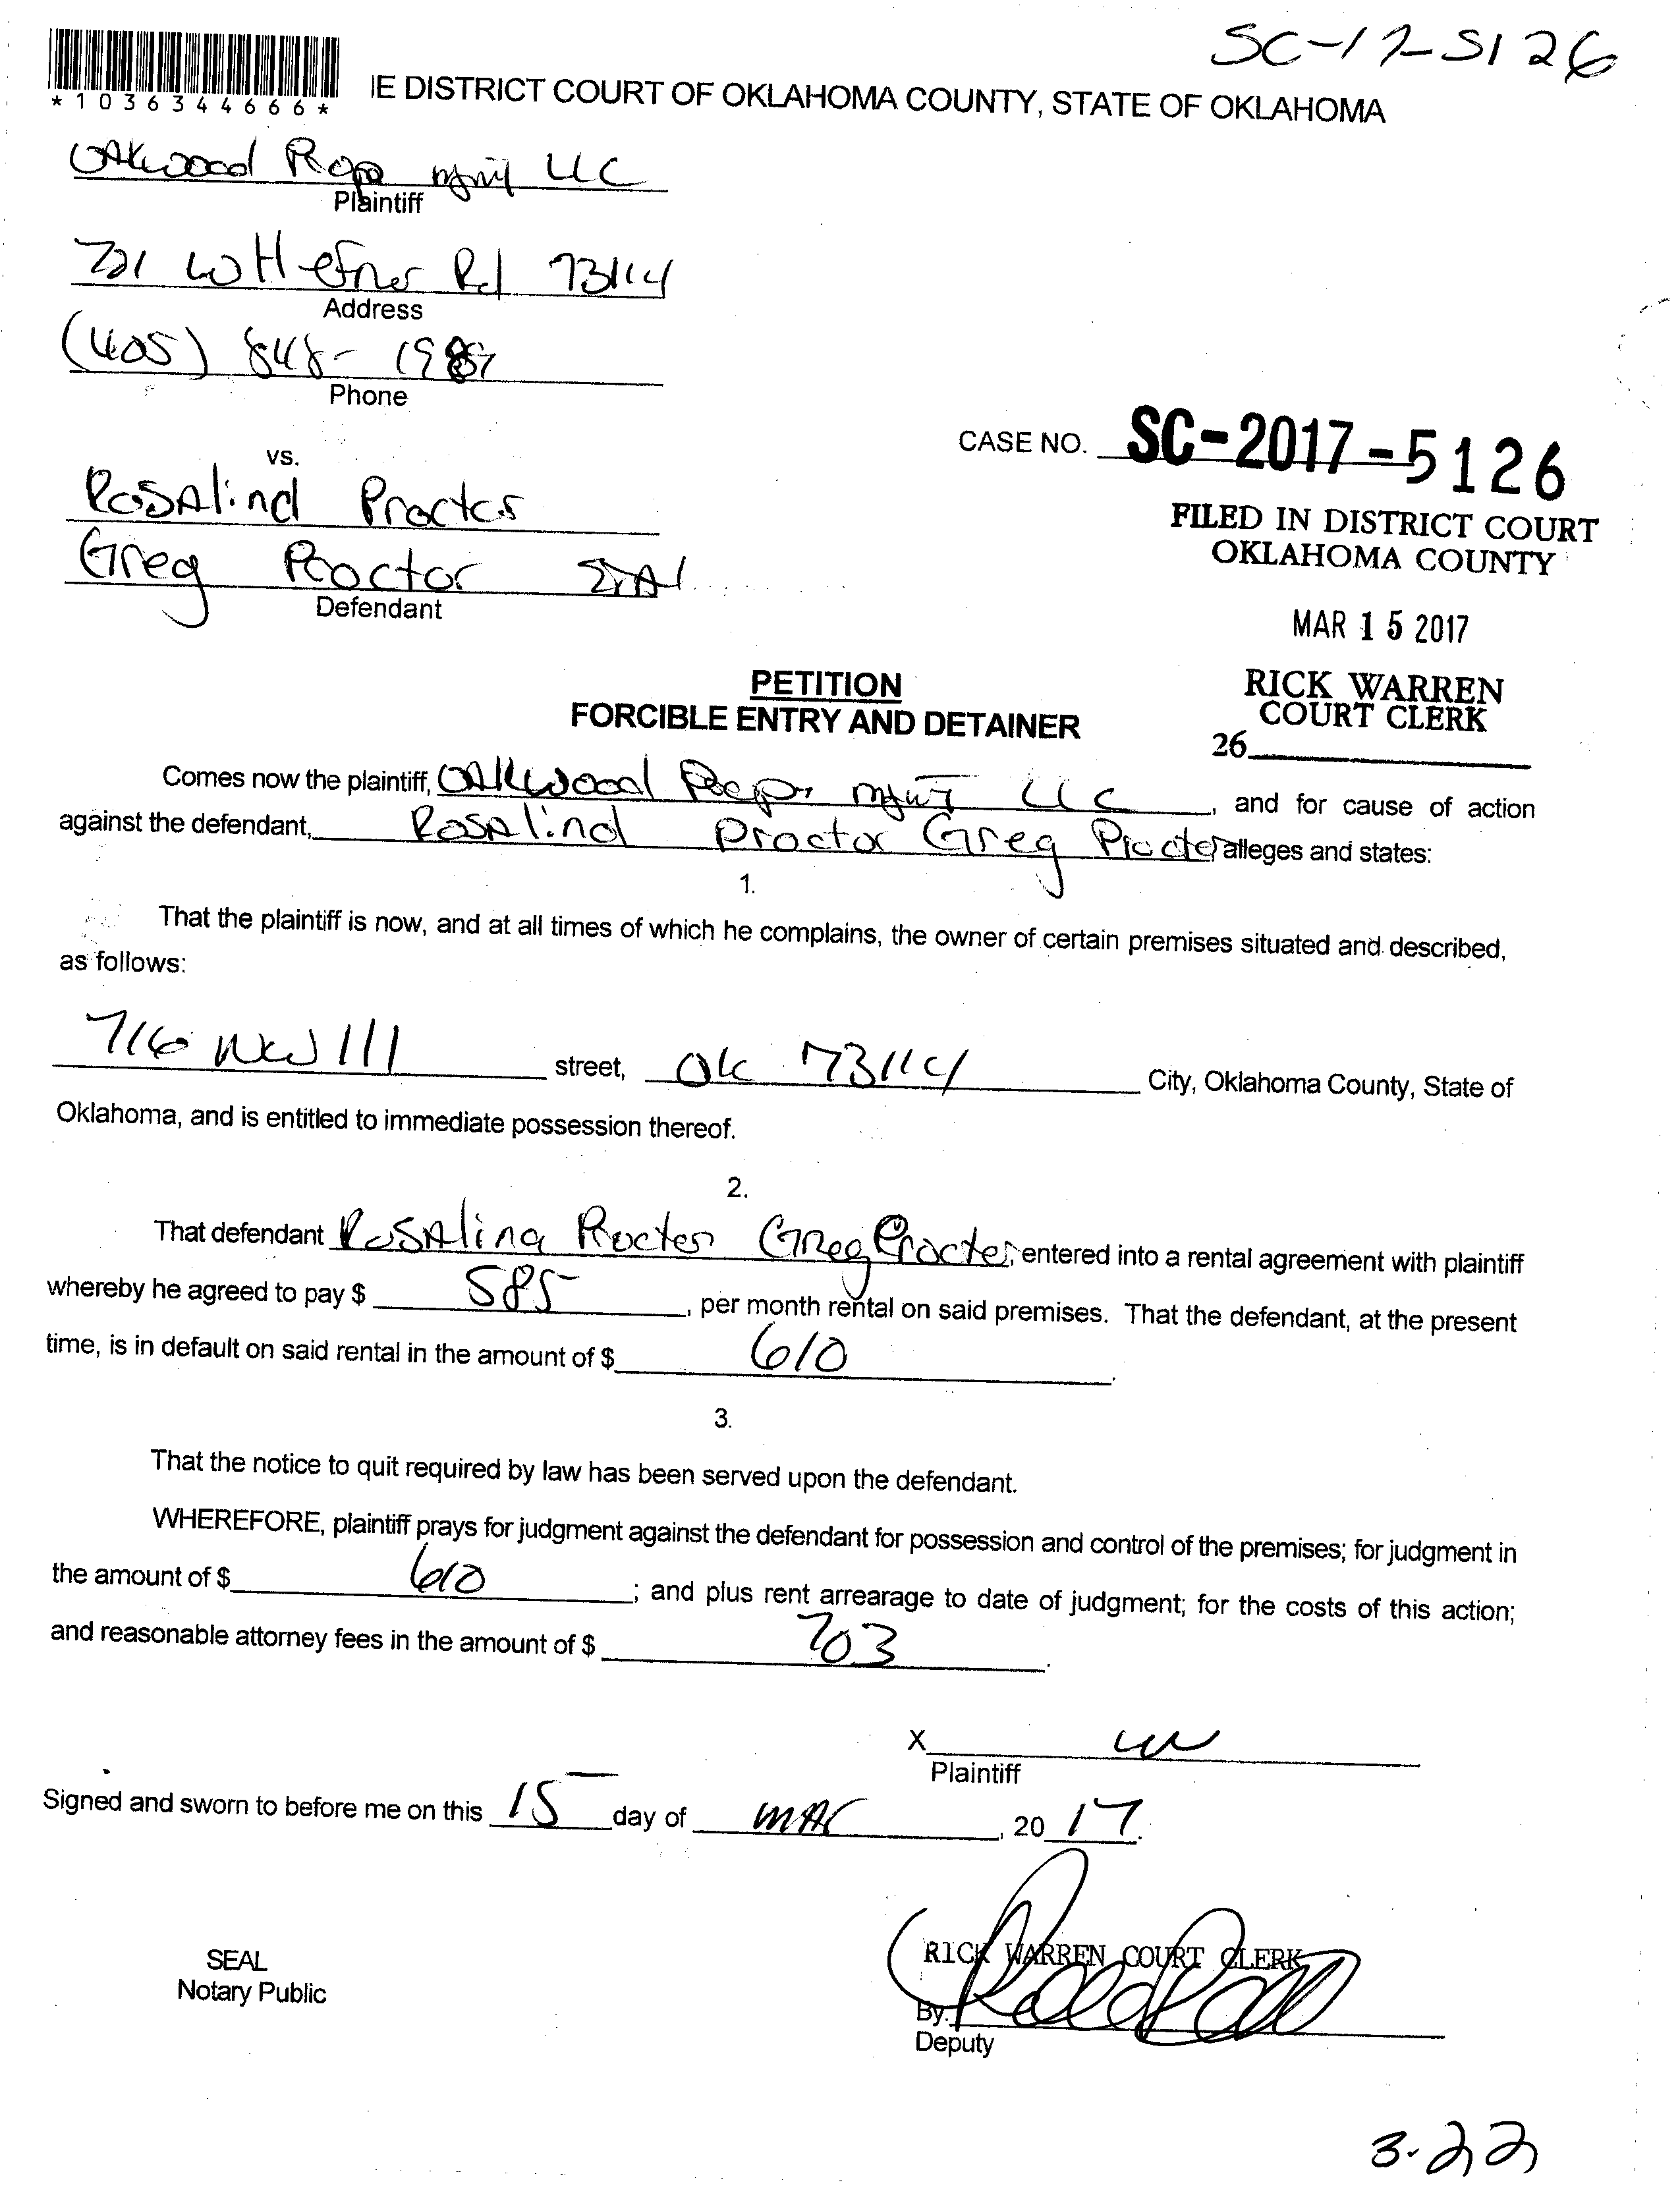 SC-17-5126
*1036344666*
IE DISTRICT COURT OF OKLAHOMA COUNTY, STATE OF OKLAHOMA
OAkwood Prop mgmt LLC
Plaintiff
721 W Hefner Rd 73114
Address
(405) 848-
Phone
CASE NO. SC-2017-5126
vs.
RosAlind Procter
FILED IN DISTRICT COURT
OKLAHOMA COUNTY
Greg Proctor
Defendant
MAR 15 2017
PETITION
FORCIBLE ENTRY AND DETAINER
RICK WARREN
COURT CLERK
26
Comes now the plaintiff, OAkwood Prop. mgmt LLC, and for cause of action
against the defendant, RosAlind Proctor Greg Procter alleges and states:
1.
That the plaintiff is now, and at all times of which he complains, the owner of certain premises situated and described,
as follows:
716 NW 111 street, Ok 73114 City, Oklahoma County, State of
Oklahoma, and is entitled to immediate possession thereof.
2.
That defendant RosAlind Procter Greg Procter, entered into a rental agreement with plaintiff
whereby he agreed to pay $ 585-, per month rental on said premises. That the defendant, at the present
time, is in default on said rental in the amount of $ 610.
3.
That the notice to quit required by law has been served upon the defendant.
WHEREFORE, plaintiff prays for judgment against the defendant for possession and control of the premises; for judgment in
the amount of $ 610; and plus rent arrearage to date of judgment; for the costs of this action;
and reasonable attorney fees in the amount of $ 203.
X
Plaintiff
Signed and sworn to before me on this 15 day of mAr, 20 17.
SEAL
Notary Public
RICK WARREN COURT CLERK
By:
Deputy
3-22